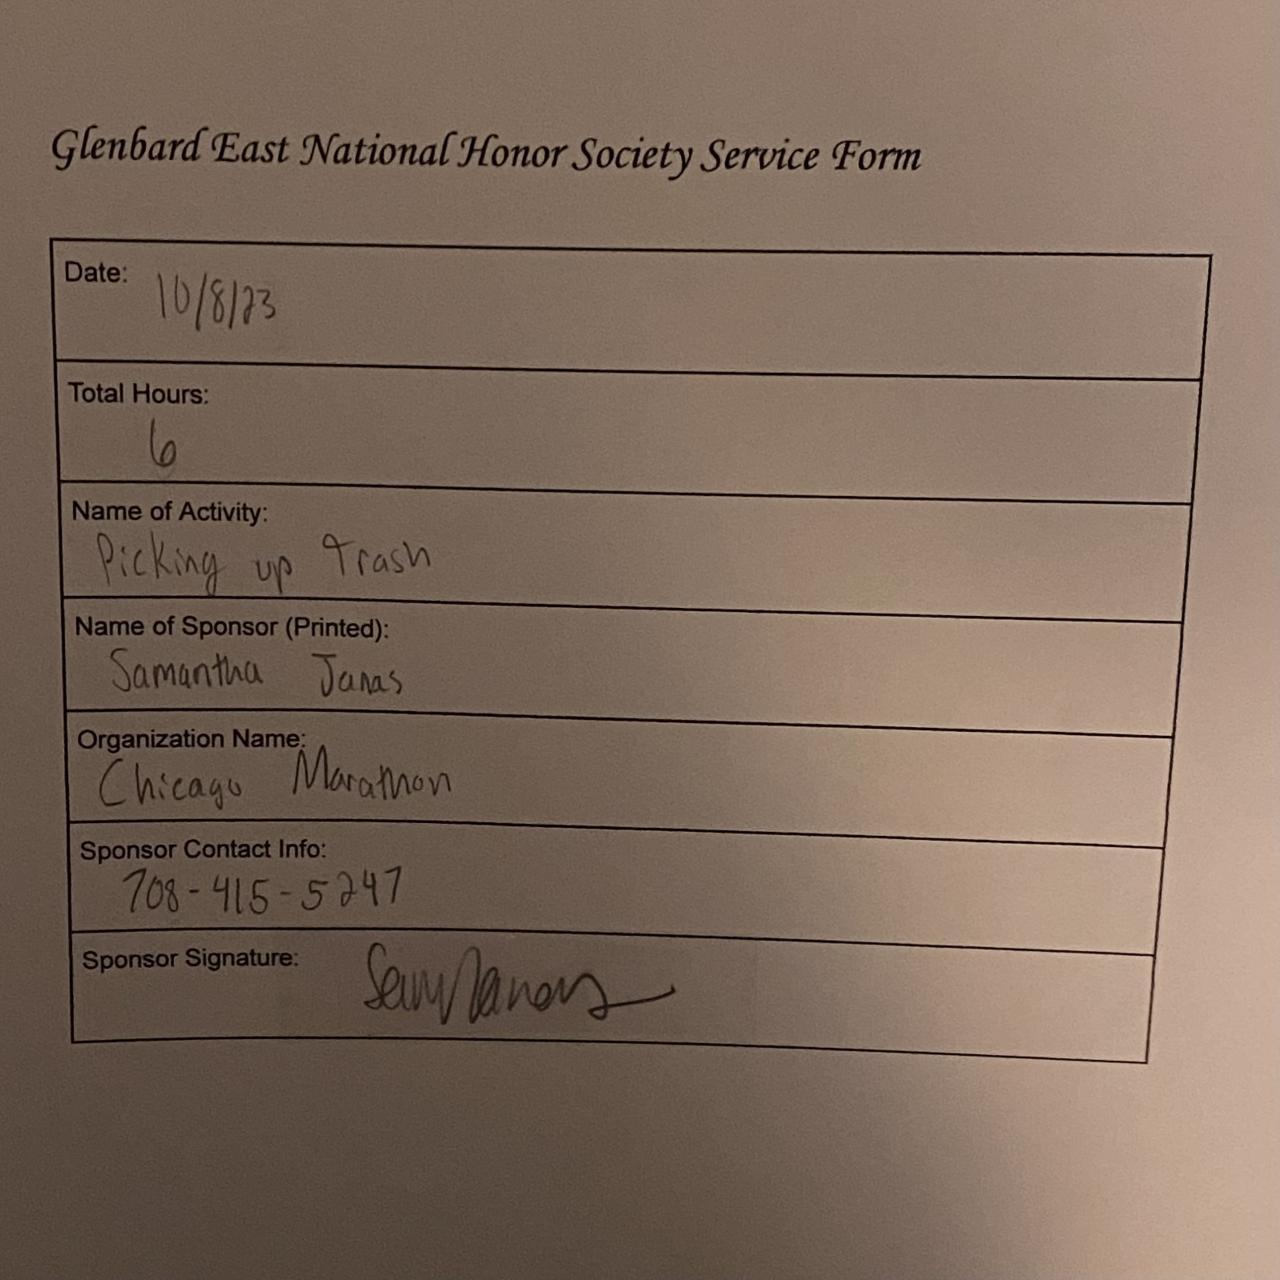 Glenbard East National Honor Society Service Form
Date:
10/8/23
Total Hours:
6
Name of Activity:
Picking up Trash
Name of Sponsor (Printed):
Samantha Janas
Organization Name:
Chicago Marathon
Sponsor Contact Info:
708-415-5247
Sponsor Signature:
Sam Janas